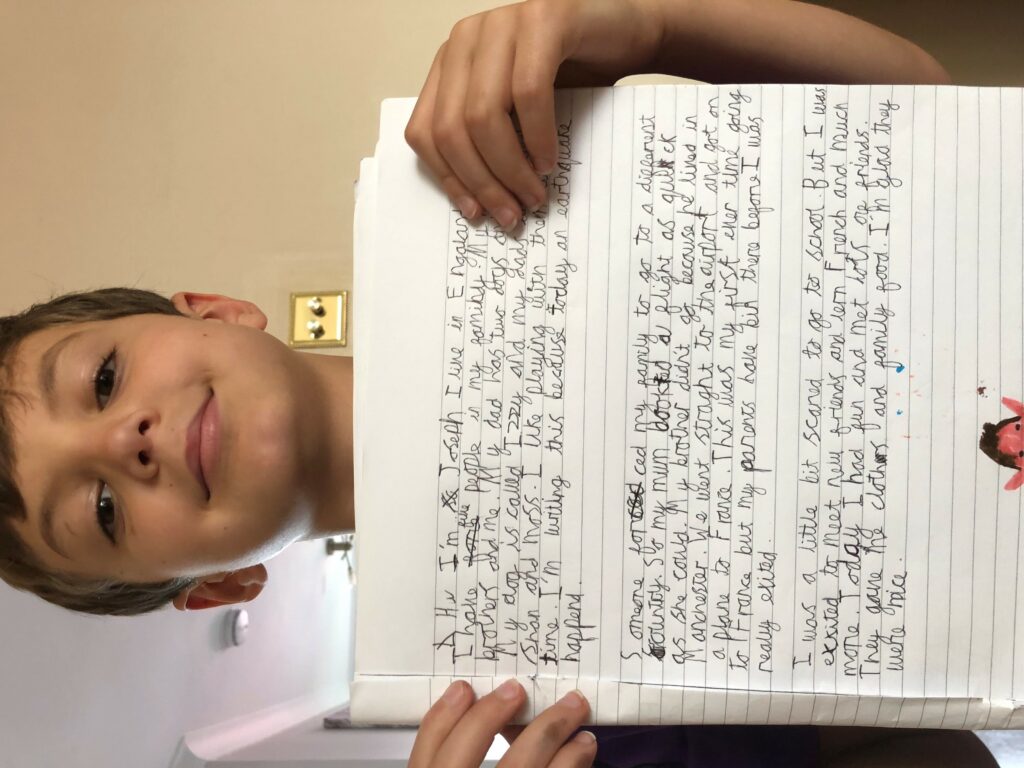 Hi I'm Joseph I live in England
I have people in my family. My
brothers and me. My dad has two dogs
My dog is called Izzy and my
Sian and moss. I like playing with them
time. I'm writing this because today an earthquake
happend.
Someone forced my family to go to a different
country. So my mum booked a flight as quick
as she could. My brother didn't go because he lived in
Manchester. We went straight to the airport and got on
a plane to France. This was my first ever time going
to France but my parents have bin there before I was
really exited.
I was a little bit scared to go to school. But I was
excited to meet new friends and lern French and much
more. Today I had fun and met lots of friends.
They gave me and family food. I'm glad they
were nice.